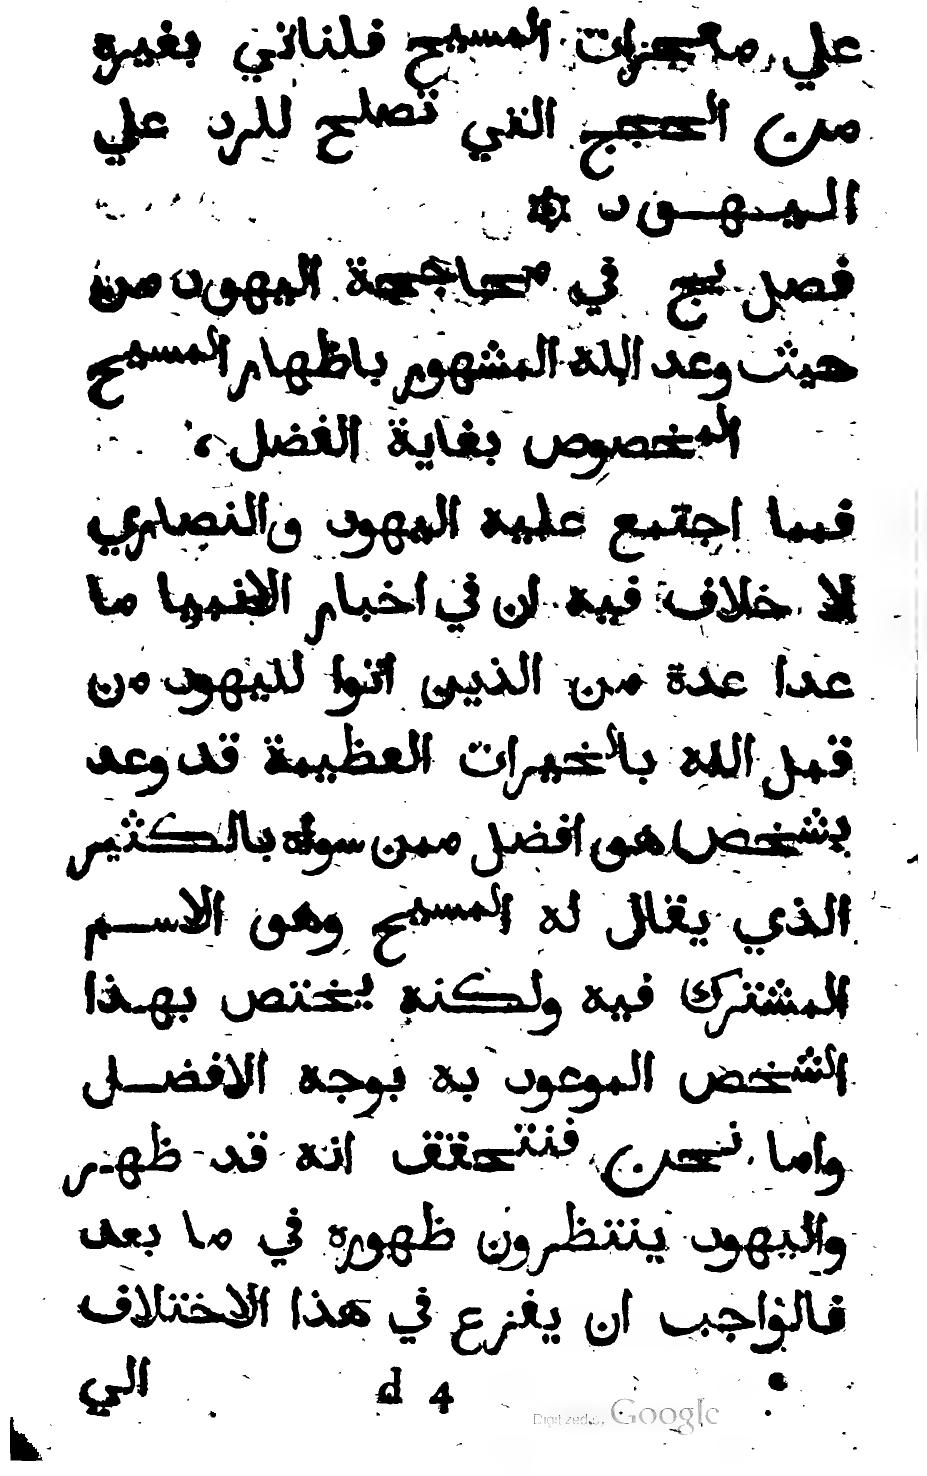 علي معجزات المسيح فلناتي بغيره
من الحجج التي تصلح للرد علي
اليهود ۞
فصل يج في محاججة اليهود من
حيث وعد الله المشهور باظهار المسيح
المخصوص بغاية الفضل،
فيما اجتمع عليه اليهود والنصاري
لا خلاف فيه ان في اخبار الانبيا ما
عدا عدة من الذين اتوا لليهود من
قبل الله بالخيرات العظيمة قد وعد
بشخص هو افضل ممن سواه بالكثير
الذي يقال له المسيح وهو الاسم
المشترك فيه ولكنه يختص بهذا
الشخص الموعود به بوجه الافضل
واما نحن فنتحقق انه قد ظهر
واليهود ينتظرون ظهوره في ما بعد
فالواجب ان يفزع في هذا الاختلاف
d 4 الي
Digitized by Google